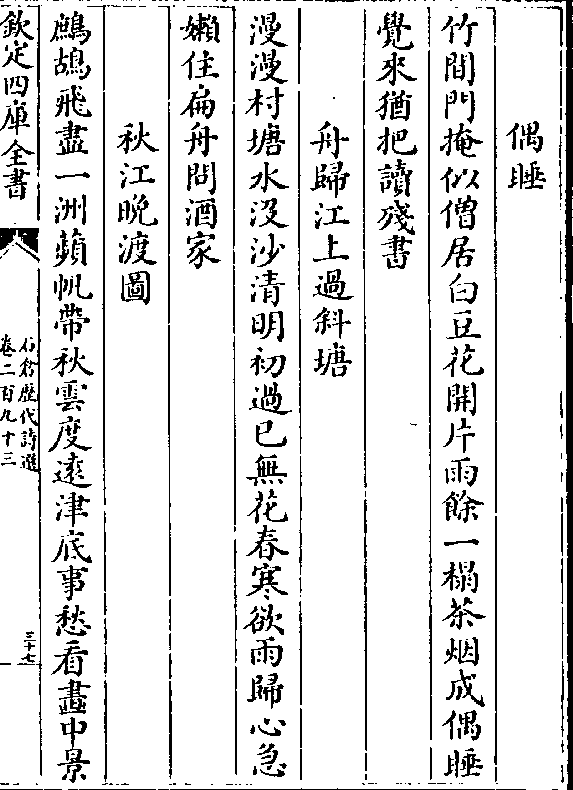 偶睡
竹間門掩似僧居白豆花開片雨餘一榻茶烟成偶睡
覺來猶把讀殘書
舟歸江上過斜塘
漫漫村塘水没沙清明初過已無花春寒欲雨歸心急
嬾住扁舟問酒家
秋江晩渡圖
鷓鴣飛盡一洲蘋帆帶秋雲度遠津底事愁看畫中景
欽定四庫全書
石倉歴代詩選
卷二百九十三
三十七